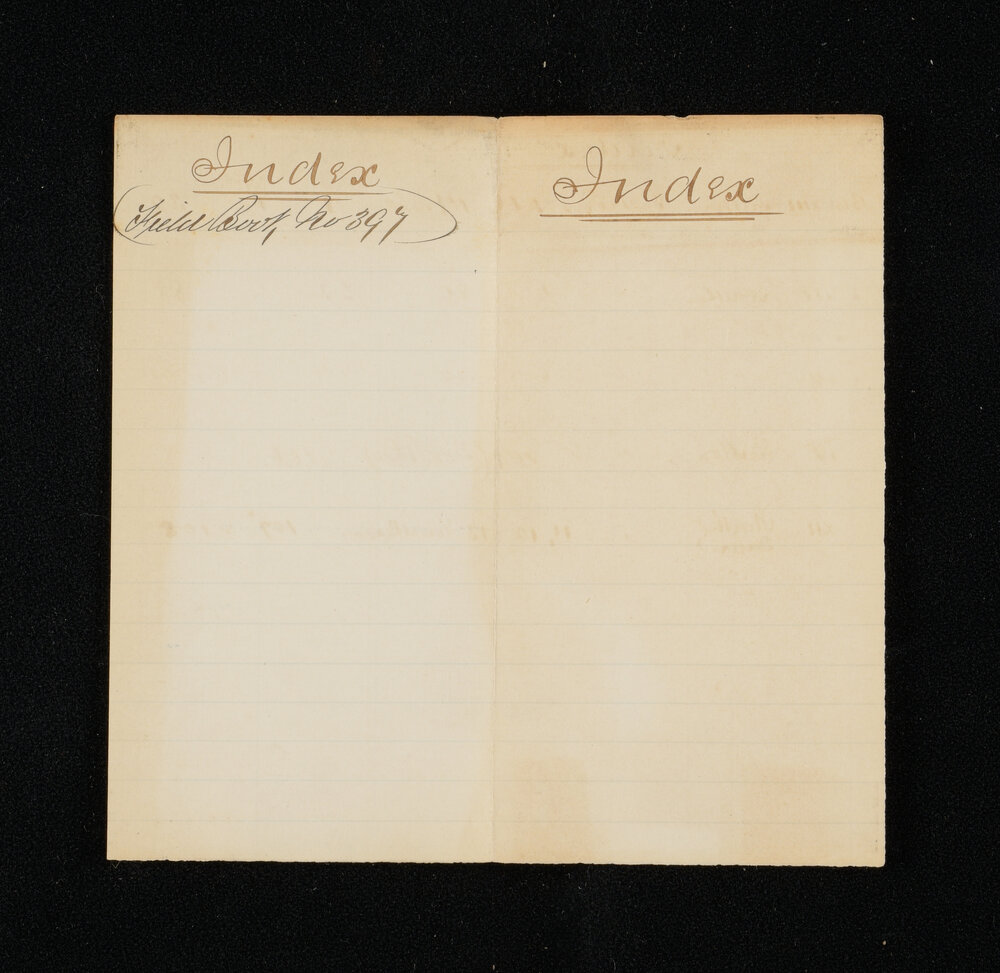 Index
Field Book, No 397
Index